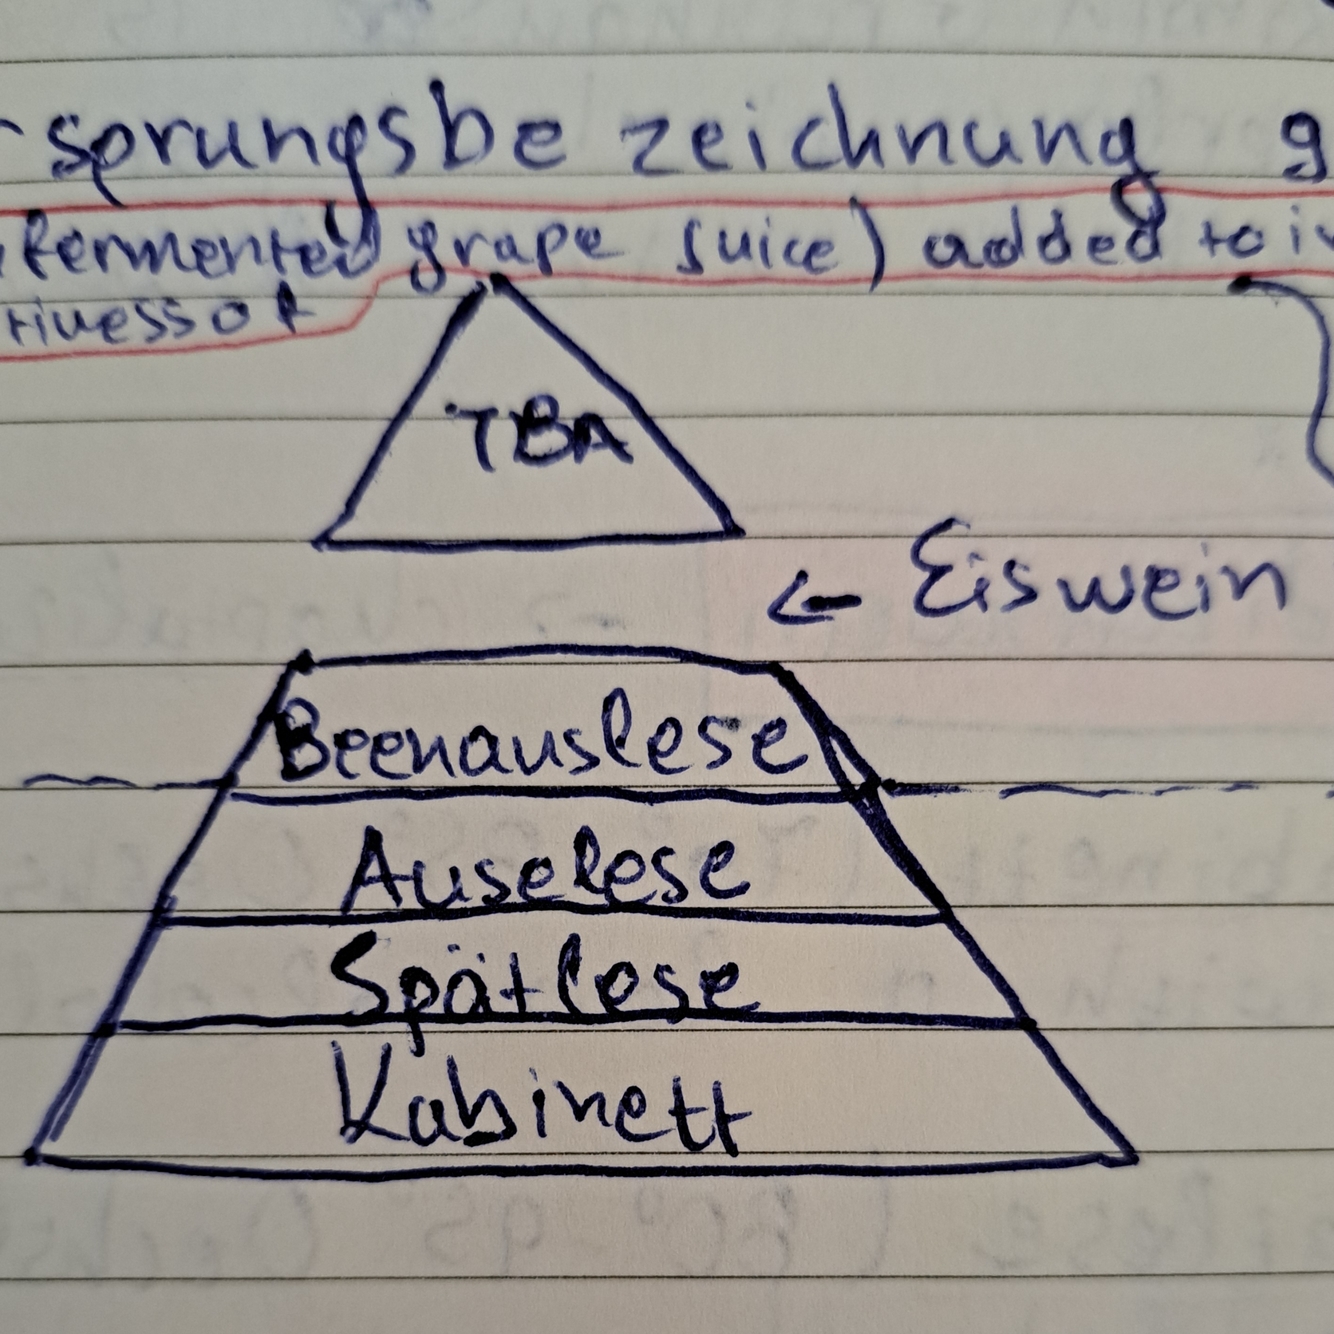 sprungsbe zeichnung g
fermented grape juice) added to
TBA
← Eiswein
Beenauslese
Auselese
Spätlese
Kabinett